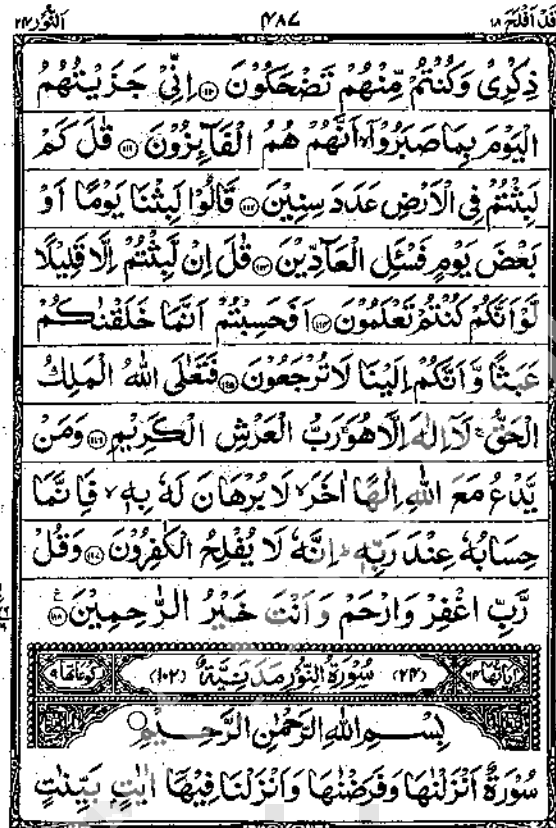 قَدْ اَفْلَحَ ١٨ ٤٨٧ اَلنُّوْر ٢٤
ذِكْرِىْ وَكُنْتُمْ مِّنْهُمْ تَضْحَكُوْنَ ﴿۱۱۰﴾ اِنِّىْ جَزَيْتُهُمُ
الْيَوْمَ بِمَا صَبَرُوْۤا ۙ اَنَّهُمْ هُمُ الْفَآىِٕزُوْنَ ﴿۱۱۱﴾ قٰلَ كَمْ
لَبِثْتُمْ فِى الْاَرْضِ عَدَدَ سِنِيْنَ ﴿۱۱۲﴾ قَالُوْا لَبِثْنَا يَوْمًا اَوْ
بَعْضَ يَوْمٍ فَسْـَٔلِ الْعَآدِّيْنَ ﴿۱۱۳﴾ قٰلَ اِنْ لَّبِثْتُمْ اِلَّا قَلِيْلًا
لَّوْ اَنَّكُمْ كُنْتُمْ تَعْلَمُوْنَ ﴿۱۱۴﴾ اَفَحَسِبْتُمْ اَنَّمَا خَلَقْنٰكُمْ
عَبَثًا وَّاَنَّكُمْ اِلَيْنَا لَا تُرْجَعُوْنَ ﴿۱۱۵﴾ فَتَعٰلَى اللّٰهُ الْمَلِكُ
الْحَقُّ ۚ لَاۤ اِلٰهَ اِلَّا هُوَ ۚ رَبُّ الْعَرْشِ الْكَرِيْمِ ﴿۱۱۶﴾ وَمَنْ
يَّدْعُ مَعَ اللّٰهِ اِلٰهًا اٰخَرَ ۙ لَا بُرْهَانَ لَهٗ بِهٖ ۙ فَاِنَّمَا
حِسَابُهٗ عِنْدَ رَبِّهٖ ؕ اِنَّهٗ لَا يُفْلِحُ الْكٰفِرُوْنَ ﴿۱۱۷﴾ وَقُلْ
رَّبِّ اغْفِرْ وَارْحَمْ وَاَنْتَ خَيْرُ الرّٰحِمِيْنَ ﴿۱۱۸﴾ ع
اٰيَاتُهَا ٦٤ (٢٤) سُوْرَةُ النُّوْرِ مَدَنِيَّةٌ (١٠٢) رُكُوْعَاتُهَا ٩
بِسْمِ اللّٰهِ الرَّحْمٰنِ الرَّحِيْمِ
سُوْرَةٌ اَنْزَلْنٰهَا وَفَرَضْنٰهَا وَاَنْزَلْنَا فِيْهَاۤ اٰيٰتٍۭ بَيِّنٰتٍ